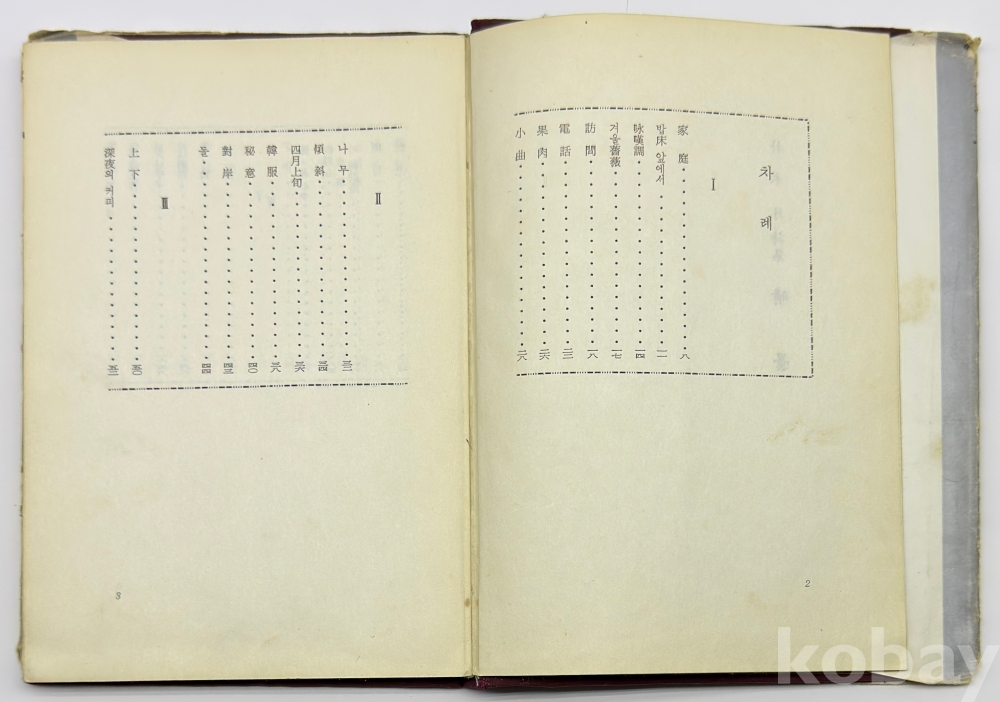 차례
I
家庭・・・・・・・・・・・・・・・八
밥床 앞에서・・・・・・・・・・・・一一
咏嘆調・・・・・・・・・・・・・・一四
겨울薔薇・・・・・・・・・・・・・一七
訪問・・・・・・・・・・・・・・・一八
電話・・・・・・・・・・・・・・・二三
果肉・・・・・・・・・・・・・・・二六
小曲・・・・・・・・・・・・・・・二八
2
Ⅱ
나무・・・・・・・・・・・・・・・三二
傾斜・・・・・・・・・・・・・・・三四
四月上旬・・・・・・・・・・・・・三六
韓服・・・・・・・・・・・・・・・三八
秘意・・・・・・・・・・・・・・・四〇
對岸・・・・・・・・・・・・・・・四三
돌・・・・・・・・・・・・・・・・四四
Ⅲ
上下・・・・・・・・・・・・・・・五〇
深夜의 커피・・・・・・・・・・・・五二
3
kobay